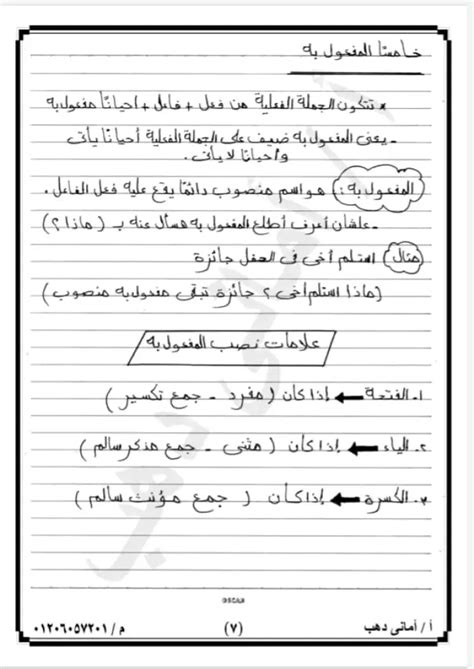 خامسًا المفعول به
* تتكون الجملة الفعلية من فعل + فاعل + أحيانًا مفعول به
- يعنى المفعول به ضيف على الجملة الفعلية أحيانًا يأتى
وأحيانًا لا يأتى .
المفعول به : هو اسم منصوب دائمًا يقع عليه فعل الفاعل .
- علشان أعرف أطلع المفعول به هسأل عنه بـ ( ماذا ؟ )
مثال استلم أخى فى الحفل جائزة
( ماذا استلم أخى ؟ جائزة تبقى مفعول به منصوب )
علامات نصب المفعول به
١- الفتحة ← إذا كان ( مفرد - جمع تكسير )
٢- الياء ← إذا كان ( مثنى - جمع مذكر سالم )
٣- الكسرة ← إذا كان ( جمع مؤنث سالم )
أمانى دهب
OSCAR
أ / أمانى دهب (٧) م / ٠١٢٠٦٠٥٧٢٠١